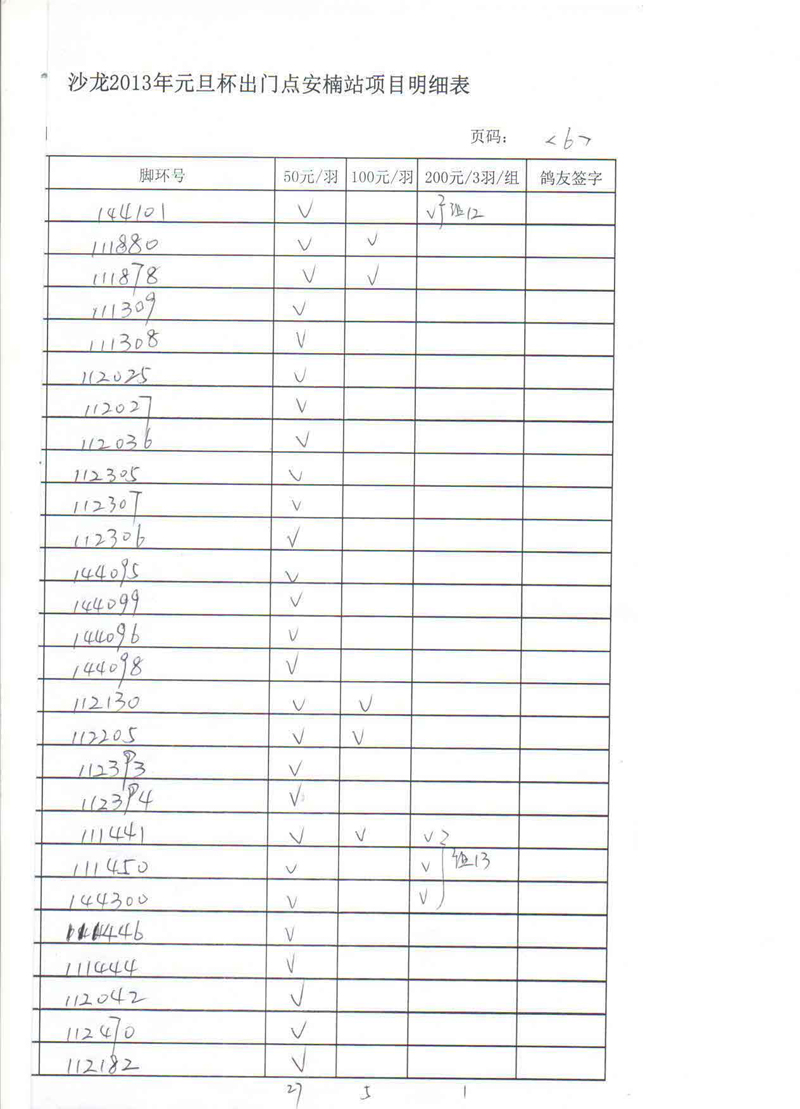 沙龙2013年元旦杯出门点安楠站项目明细表
页码: <6>
脚环号 50元/羽 100元/羽 200元/3羽/组 鸽友签字
144101 √ √ 组12
111880 √ √
111878 √ √
111309 √
111308 √
112025 √
112027 √
112036 √
112305 √
112307 √
112306 √
144095 √
144099 √
144096 √
144098 √
112130 √ √
112205 √ √
112393 √
112394 √
111441 √ √ √
111450 √ √ 组13
144300 √ √
111446 √
111444 √
112042 √
112470 √
112182 √
27 5 1